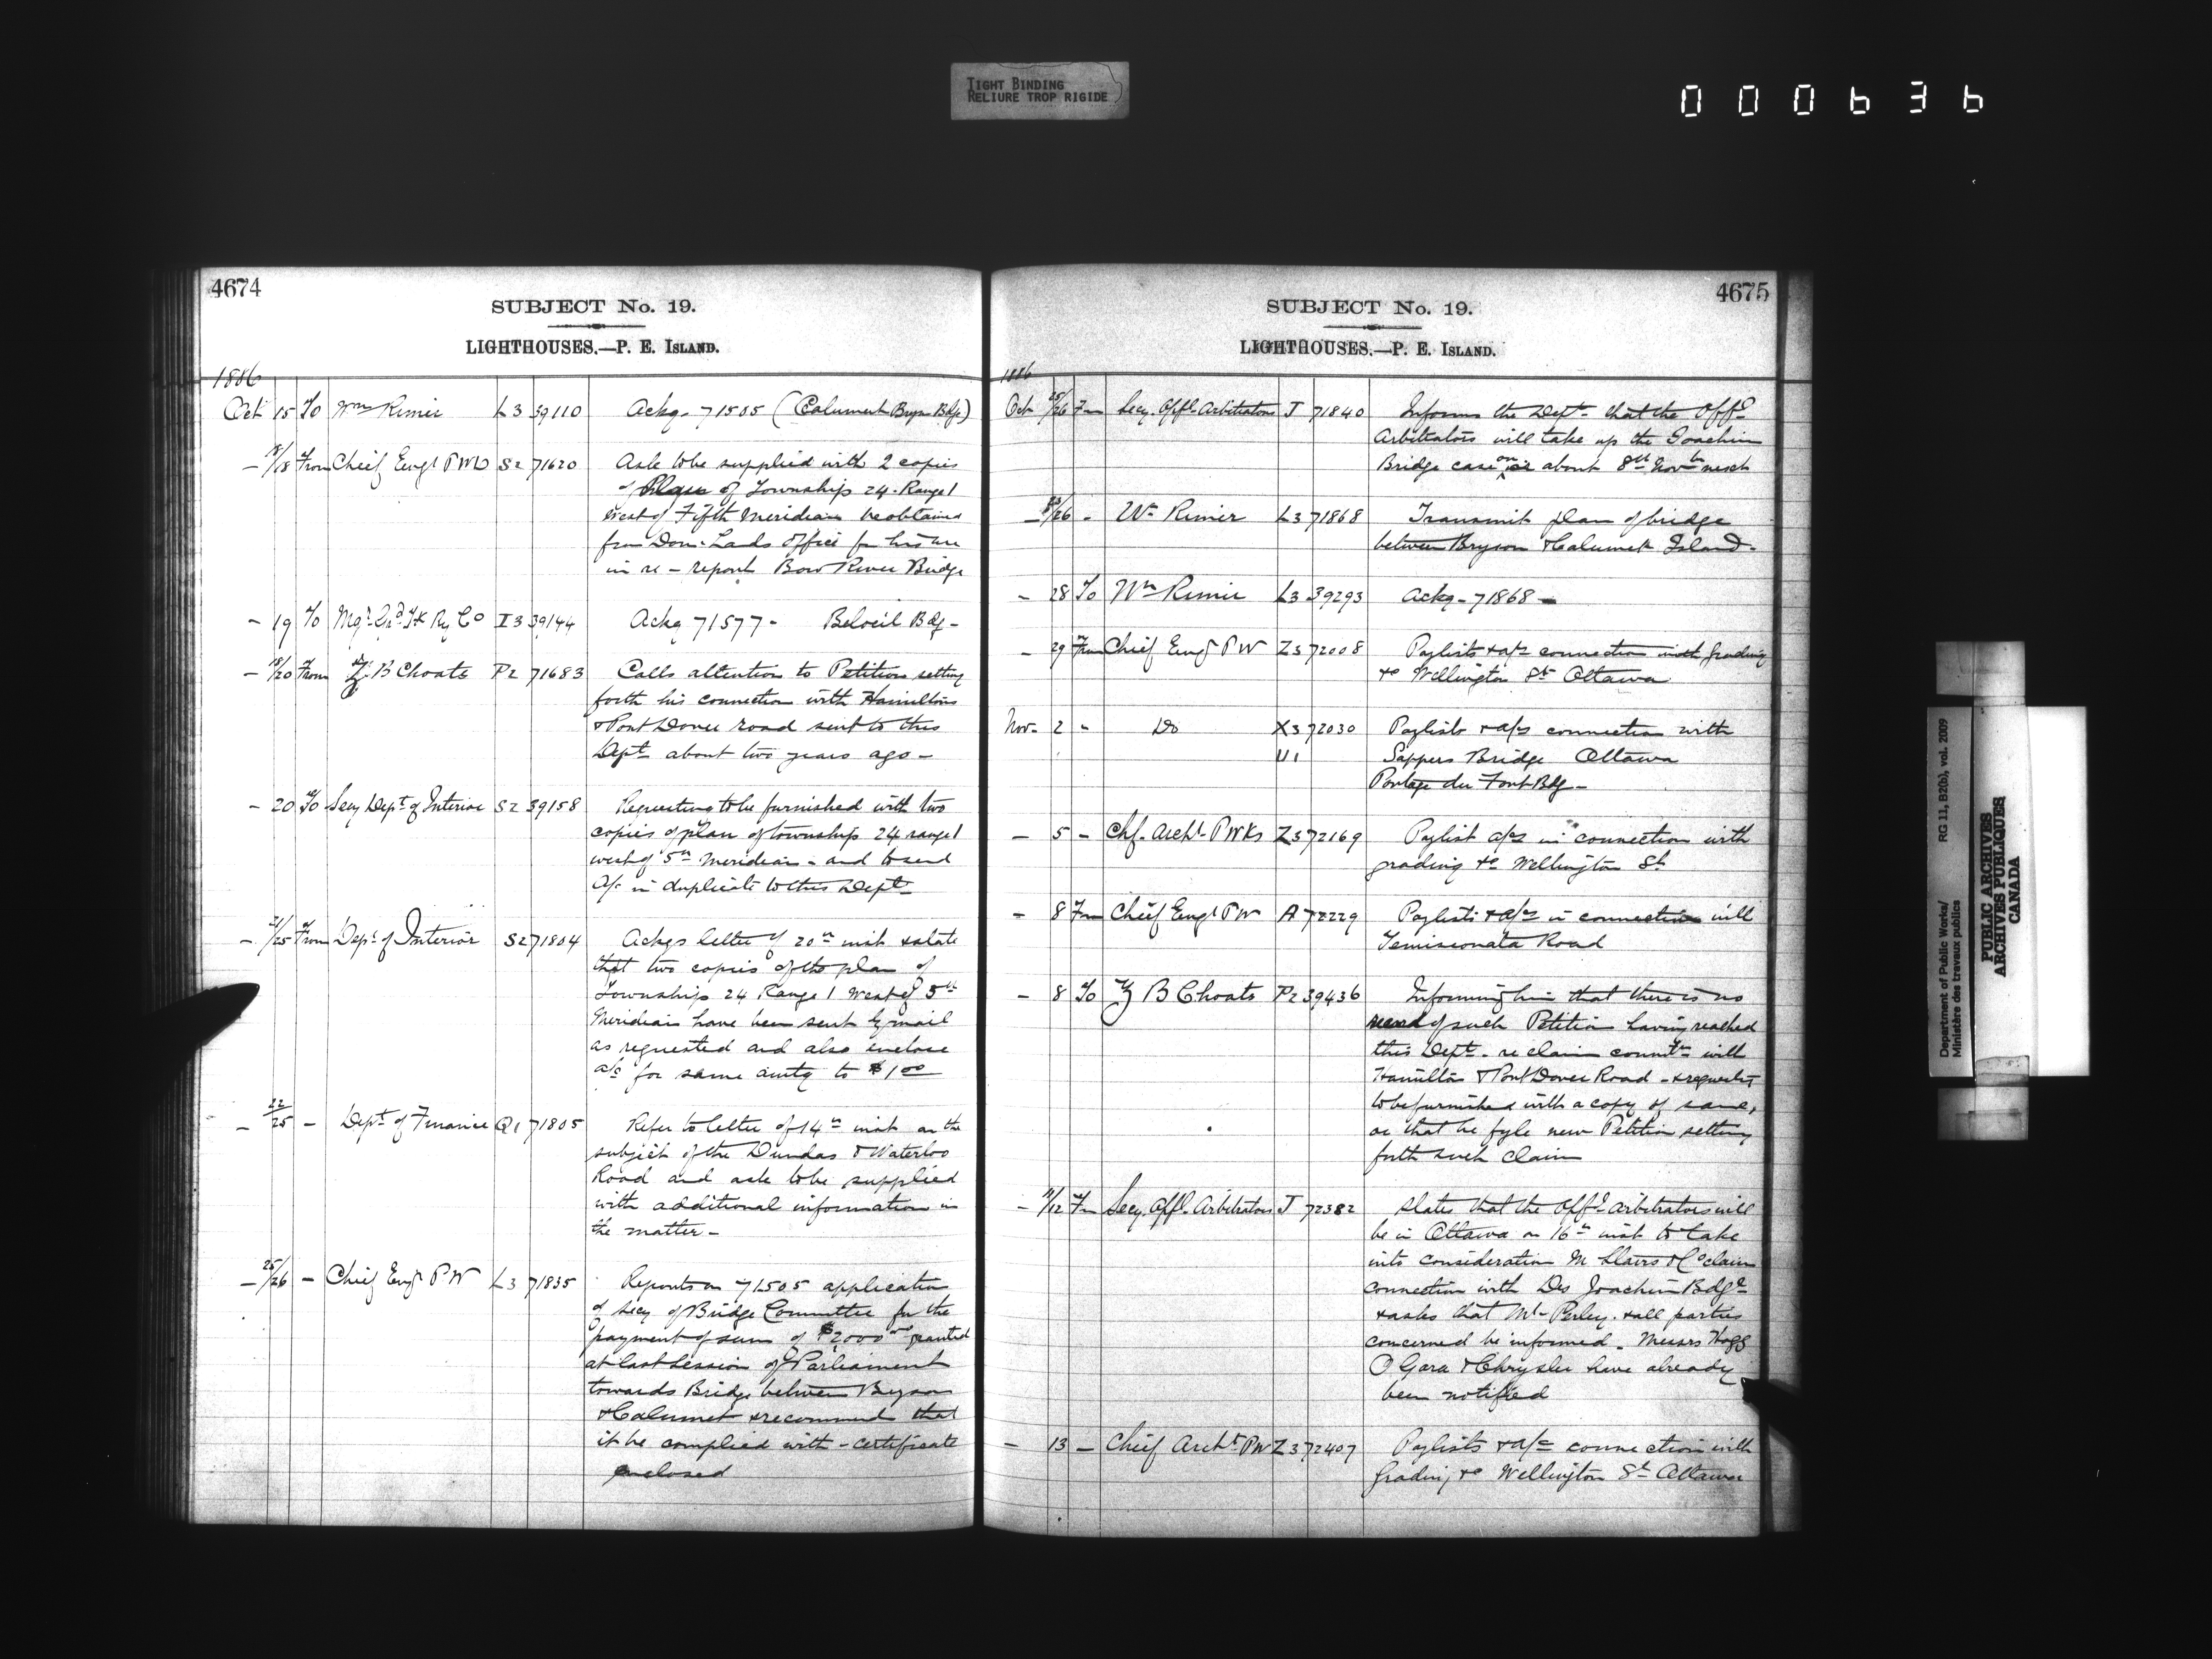 TIGHT BINDING
RELIURE TROP RIGIDE
000636
4674
SUBJECT No. 19.
LIGHTHOUSES.—P. E. ISLAND.
1886
Oct 15 To Wm Rimer L3 39110 Ackg. 71505 (Calumet Bryson Bdge)
— 18/18 From Chief Engr PWD S2 71620 Ask to be supplied with 2 copies
of Plan of Township 24. Range 1
West of Fifth Meridian be obtained
from Dom. Lands Office for his use
in re - report Bow River Bridge
— 19 To Mgr Grd Tk Ry Co I3 39144 Ackg 71577 - Beloeil Bdg -
— 18/20 From Z. B Choate P2 71683 Calls attention to Petition setting
forth his connection with Hamilton
& Port Dover road sent to this
Dept about two years ago -
— 20 To Secy Dept of Interior S2 39158 Requesting to be furnished with two
copies of plan of township 24 range 1
west of 5th Meridian - and to send
a/c in duplicate to this Dept
— 21/25 From Dept of Interior S2 71804 Ackgs letter of 20th inst & state
that two copies of the plan of
Township 24 Range 1 West of 5th
Meridian have been sent by mail
as requested and also enclose
a/c for same amtg to $1.00
— 22/25 — Dept of Finance Q1 71805 Refer to letter of 14th inst on the
subject of the Dundas & Waterloo
Road and ask to be supplied
with additional information in
the matter -
— 25/26 — Chief Engr PW L3 71835 Reports on 71505 application
of Secy of Bridge Committee for the
payment of sum of $2000.00 granted
at last Session of Parliament
towards Bridge between Bryson
& Calumet & recommend that
it be complied with - certificate
enclosed
4675
SUBJECT No. 19.
LIGHTHOUSES.—P. E. ISLAND.
1886
Oct 25/26 Fm Secy. Offl. Arbitrators J 71840 Informs the Dept. that the Offl
Arbitrators will take up the Joachim
Bridge case on or about 8th Novbr next
— /26 - Wm Rimer L3 71868 Transmit plan of bridge
between Bryson & Calumet Island.
— 28 To Wm Rimer L3 39293 Ackg - 71868 -
— 29 From Chief Engr PW Z3 72008 Paylists & a/cs connection with grading
&c Wellington St Ottawa
Nov. 2 - Do X3 72030 Paylists & a/cs connection with
U1 Sappers Bridge Ottawa
Portage du Fort Bdg -
— 5 — Chf. Archt. PWKs Z3 72169 Paylist a/cs in connection with
grading &c Wellington St.
— 8 Fm Chief Engr PW A 72229 Paylists & a/cs in connection with
Temisconata Road
— 8 To Z B Choate P2 39436 Informing him that there is no
record of such Petition having reached
this Dept. re claim with
Hamilton & Port Dover Road - & requests
to be furnished with a copy of same,
or that he fyle new Petition setting
forth such claim
— 11/12 Fm Secy. Offl. Arbitrators J 72382 States that the Offl arbitrators will
be in Ottawa on 16th inst to take
into consideration & Co claim
connection with Des Joachim Bdge
& asks that Mr. Perley. & all parties
concerned be informed. Messrs Hogg
O'Gara & Chrysler have already
been notified
— 13 — Chief Archt PW Z3 72407 Paylists & a/cs connection with
grading &c Wellington St Ottawa
Department of Public Works/ RG 11, B20(b), vol. 2009
Ministère des travaux publics
PUBLIC ARCHIVES
ARCHIVES PUBLIQUES
CANADA